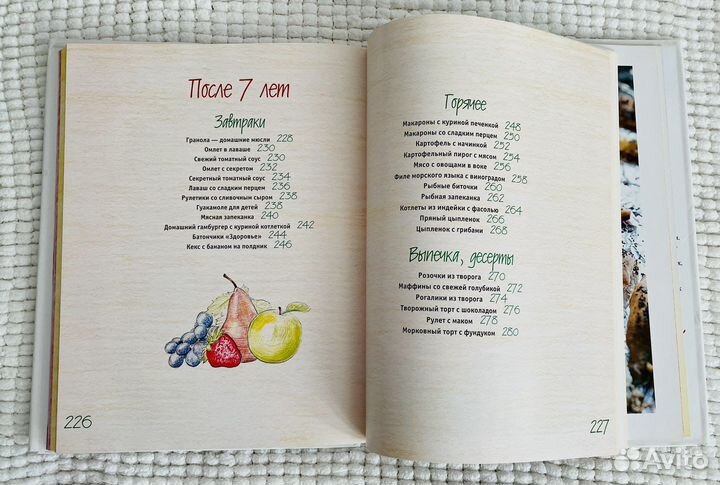 После 7 лет
Завтраки
Гранола — домашние мюсли 228
Омлет в лаваше 230
Свежий томатный соус 230
Омлет с секретом 232
Секретный томатный соус 234
Лаваш со сладким перцем 236
Рулетики со сливочным сыром 238
Гуакамоле для детей 238
Мясная запеканка 240
Домашний гамбургер с куриной котлеткой 242
Батончики «Здоровье» 244
Кекс с бананом на полдник 246
226
Горячее
Макароны с куриной печенкой 248
Макароны со сладким перцем 250
Картофель с начинкой 252
Картофельный пирог с мясом 254
Мясо с овощами в воке 256
Филе морского языка с виноградом 258
Рыбные биточки 260
Рыбная запеканка 262
Котлеты из индейки с фасолью 264
Пряный цыпленок 266
Цыпленок с грибами 268
Выпечка, десерты
Розочки из творога 270
Маффины со свежей голубикой 272
Рогалики из творога 274
Творожный торт с шоколадом 276
Рулет с маком 278
Морковный торт с фундуком 280
227
Avito